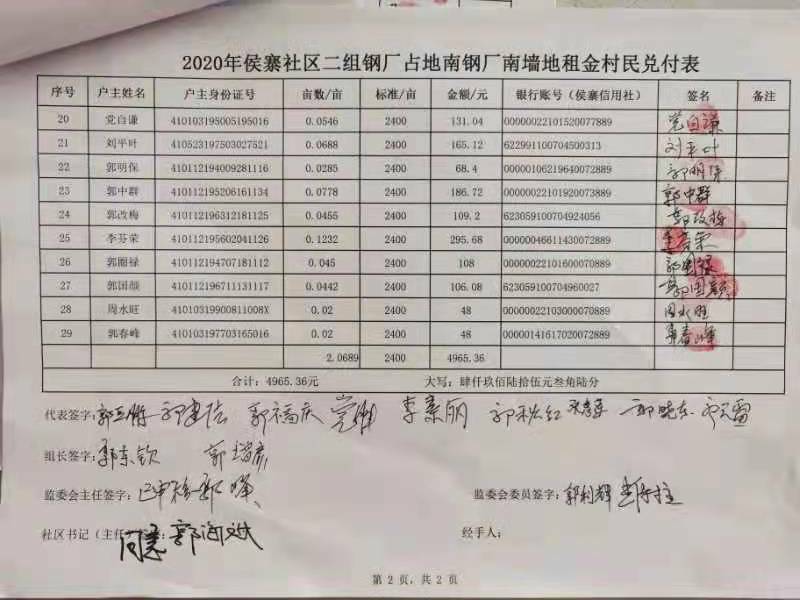 2020年侯寨社区二组钢厂占地南钢厂南墙地租金村民兑付表
序号 户主姓名 户主身份证号 亩数/亩 标准/亩 金额/元 银行账号（侯寨信用社） 签名 备注
20 党自谦 410103195005195016 0.0546 2400 131.04 00000022101520077889 党自谦
21 刘平叶 410523197503027521 0.0688 2400 165.12 622991100704500313 刘平叶
22 郭明保 410112194009281116 0.0285 2400 68.4 00000106219640072889 郭明保
23 郭中群 410112195206161134 0.0778 2400 186.72 00000022101920073889 郭中群
24 郭改梅 410112196312181125 0.0455 2400 109.2 623059100704924056 郭改梅
25 李芬荣 410112195602041126 0.1232 2400 295.68 00000046611430072889 李芬荣
26 郭圈禄 410112194707181112 0.045 2400 108 00000022101600070889
27 郭国颜 410112196711131117 0.0442 2400 106.08 623059100704960027 郭国颜
28 周水旺 41010319900811008X 0.02 2400 48 00000022103000070889 周水旺
29 郭春峰 410103197703165016 0.02 2400 48 00000141617020072889 郭春峰
2.0689 2400 4965.36
合计：4965.36元 大写：肆仟玖佰陆拾伍元叁角陆分
代表签字： 郭福庆 李素丽 郭秋红 郭晓东
组长签字：郭东钦 郭瑞彦
监委会主任签字：
监委会委员签字：郭利辉
社区书记（主任） 同意 郭海斌
经手人：
第 2 页，共 2 页